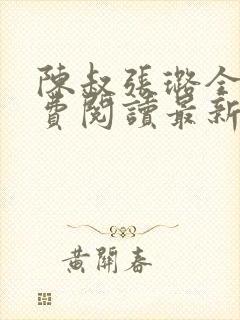 陳叔張璐全
費閱讀最新
黃開春